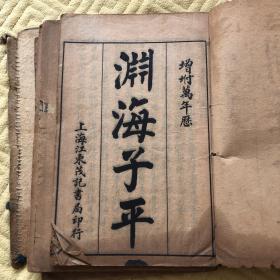 增坿萬年厯
淵海子平
上海江東茂記書局印行